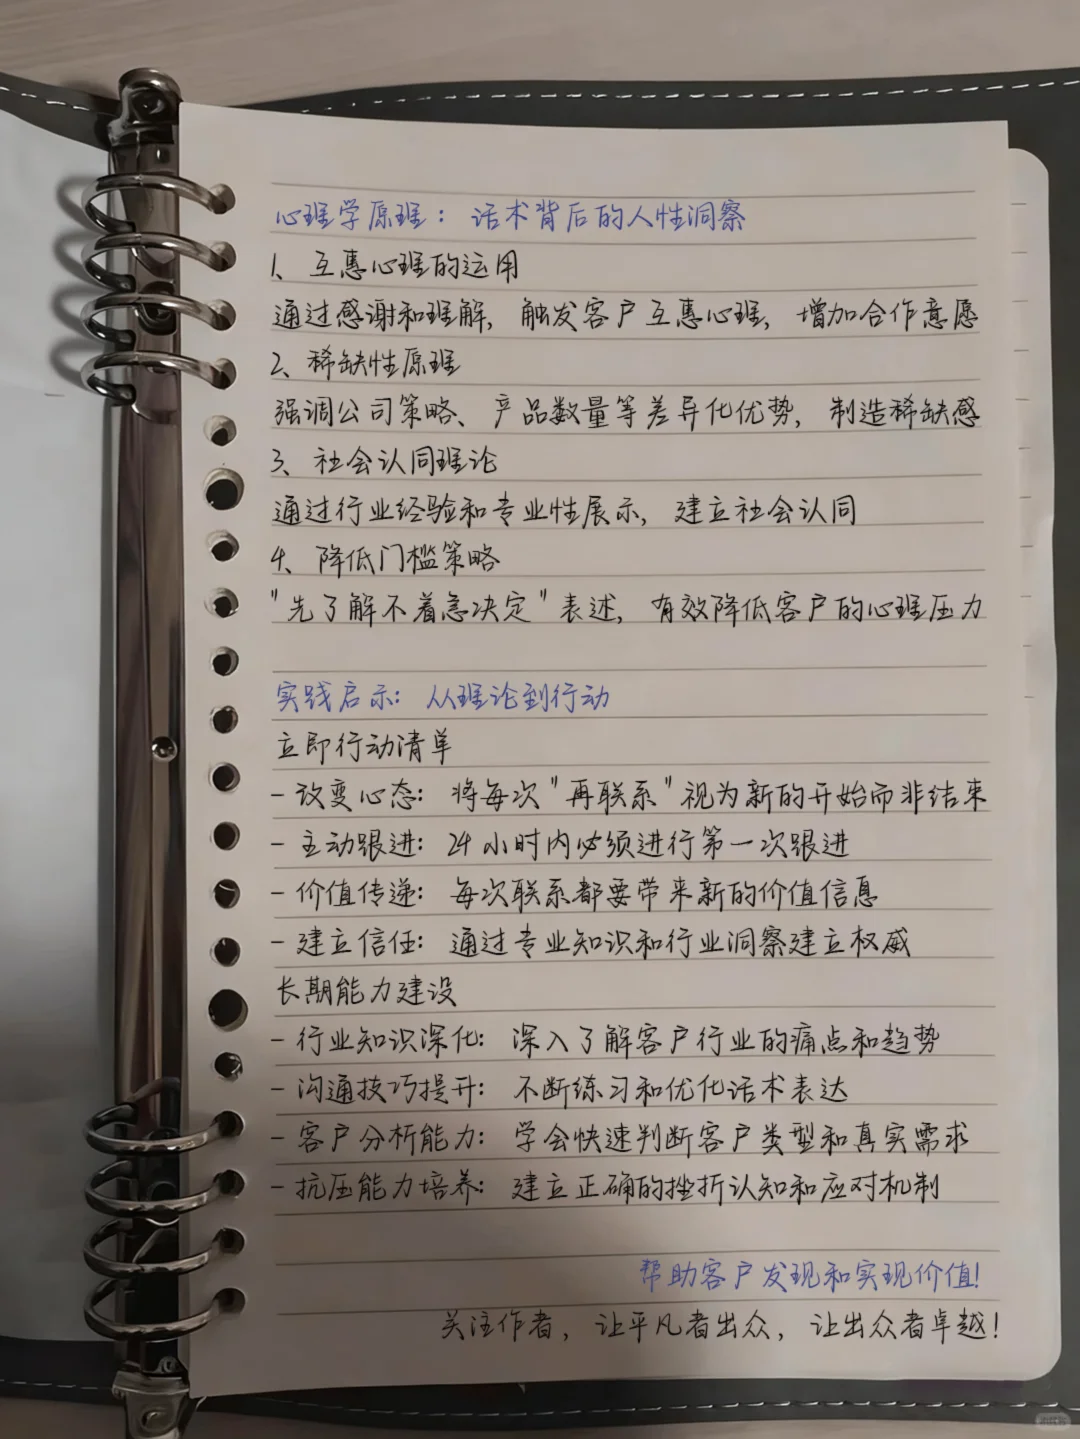 心理学原理：话术背后的人性洞察
1、互惠心理的运用
通过感谢和理解，触发客户互惠心理，增加合作意愿
2、稀缺性原理
强调公司策略、产品数量等差异化优势，制造稀缺感
3、社会认同理论
通过行业经验和专业性展示，建立社会认同
4、降低门槛策略
"先了解不着急决定"表述，有效降低客户的心理压力
实践启示：从理论到行动
立即行动清单
- 改变心态：将每次"再联系"视为新的开始而非结束
- 主动跟进：24小时内必须进行第一次跟进
- 价值传递：每次联系都要带来新的价值信息
- 建立信任：通过专业知识和行业洞察建立权威
长期能力建设
- 行业知识深化：深入了解客户行业的痛点和趋势
- 沟通技巧提升：不断练习和优化话术表达
- 客户分析能力：学会快速判断客户类型和真实需求
- 抗压能力培养：建立正确的挫折认知和应对机制
帮助客户发现和实现价值！
关注作者，让平凡者出众，让出众者卓越！